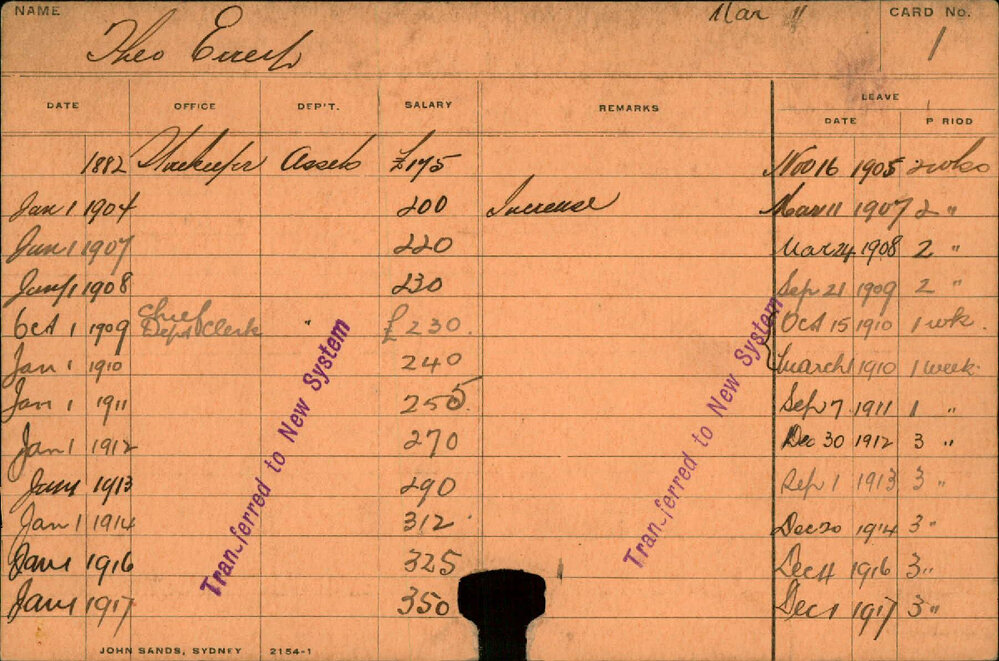 NAME Mar " CARD No.
Theo 1
DATE OFFICE DEP'T. SALARY REMARKS LEAVE
DATE P RIOD
1882 Assets £175 Nov 16 1905 2 wks
Jan 1 1904 200 Increase Mar 11 1907 2 "
Jan 1 1907 220 Mar 24 1908 2 "
Jan 1 1908 230 Sep 21 1909 2 "
Chief
Oct 1 1909 Dept Clerk " £230. Oct 15 1910 1 wk.
Jan 1 1910 240 March 1 1910 1 week.
Jan 1 1911 255 Sep 7 1911 1 "
Jan 1 1912 270 Dec 30 1912 3 "
Jan 1 1913 290 Sep 1 1913 3 "
Jan 1 1914 312 Dec 20 1914 3 "
Jan 1 1916 325 Dec 4 1916 3 "
Jan 1 1917 350 Dec 1 1917 3 "
Transferred to New System
Transferred to New System
JOHN SANDS, SYDNEY 2154-1